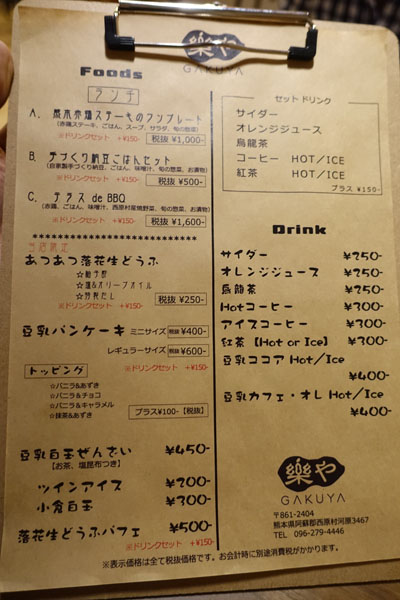 樂や
GAKUYA
Foods
ランチ
A. 熊本赤鶏ステーキのワンプレート
(赤鶏ステーキ、ごはん、スープ、サラダ、旬の惣菜)
※ドリンクセット +¥150- 税抜 ¥1,000-
B. 手づくり納豆ごはんセット
(自家製手づくり納豆、ごはん、味噌汁、旬の惣菜、お漬物)
※ドリンクセット +¥150- 税抜 ¥500-
C. テラス de BBQ
(赤鶏、ごはん、味噌汁、西原村産焼野菜、旬の惣菜、お漬物)
※ドリンクセット +¥150- 税抜 ¥1,600-
********************
あつあつ落花生どうふ
☆塩&オリーブオイル
☆特製だし
税抜 ¥250-
※ドリンクセット +¥150-
豆乳パンケーキ ミニサイズ 税抜 ¥400-
レギュラーサイズ 税抜 ¥600-
※ドリンクセット +¥150-
トッピング
☆バニラ&あずき
☆バニラ&チョコ
☆バニラ&キャラメル
☆抹茶&あずき
プラス¥100-【税抜】
豆乳白玉ぜんざい ¥450-
【お茶、塩昆布つき】
ツインアイス ¥200-
小倉白玉 ¥300-
落花生どうふパフェ ¥500-
※ドリンクセット +¥150-
セットドリンク
サイダー
オレンジジュース
烏龍茶
コーヒー HOT/ICE
紅茶 HOT/ICE
プラス ¥150-
Drink
サイダー ¥250-
オレンジジュース ¥250-
烏龍茶 ¥250-
Hotコーヒー ¥300-
アイスコーヒー ¥300-
紅茶【Hot or Ice】 ¥300-
豆乳ココア Hot/Ice
¥400-
豆乳カフェ・オレ Hot/Ice
¥400-
樂や
GAKUYA
〒861-2404
熊本県阿蘇郡西原村河原3467
TEL 096-279-4446
※表示価格は全て税抜価格です。お会計時に別途消費税がかかります。